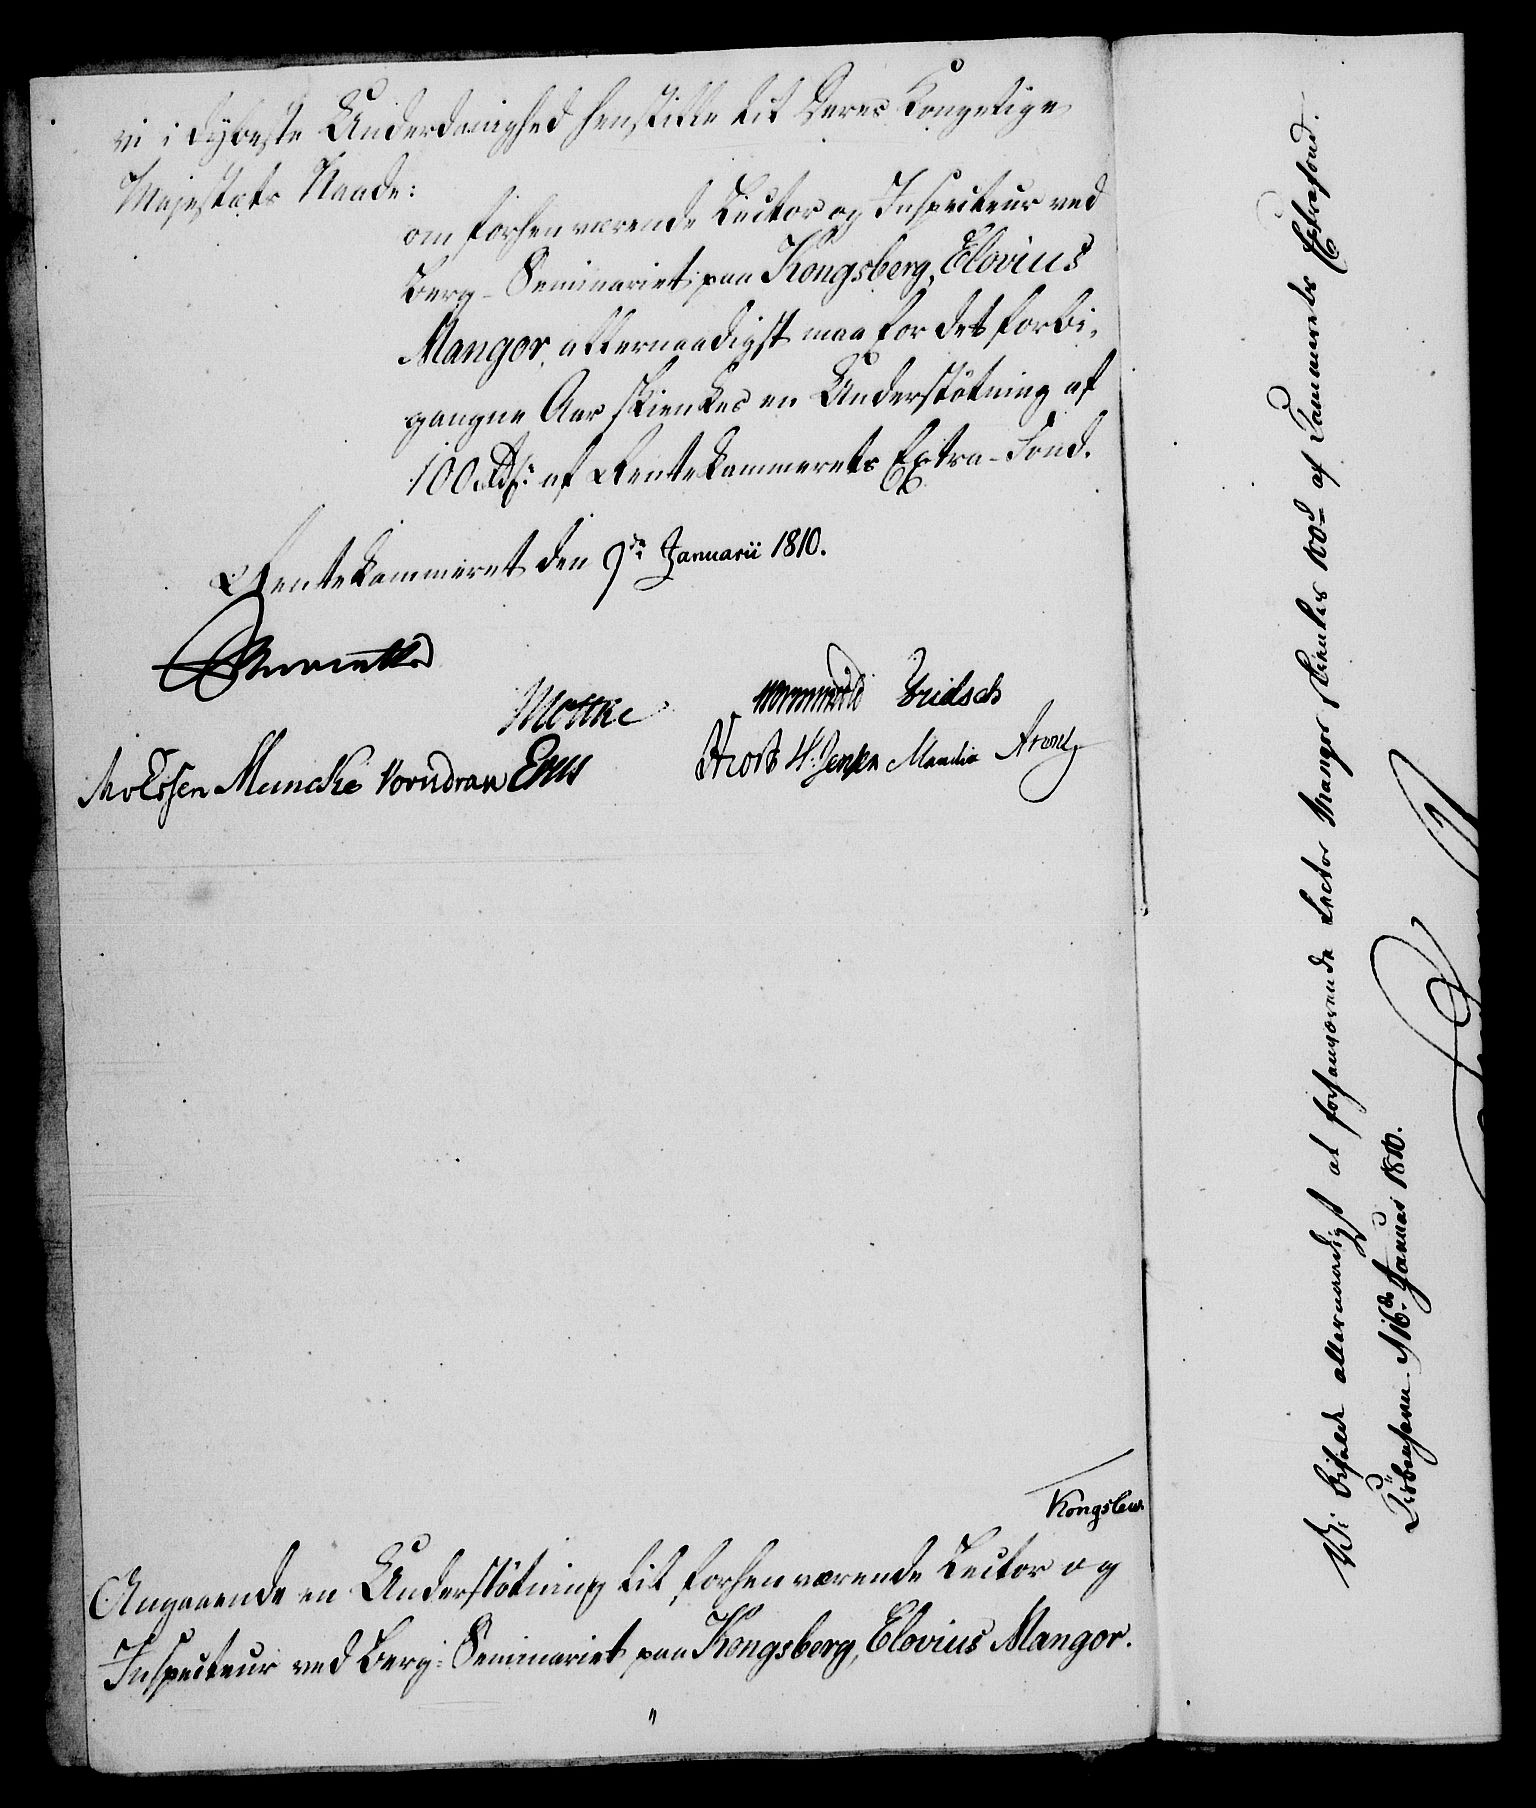 vi i dybeste Underdanighed henstille til Deres Kongelige
Majestæts Naade:
om forhenværende Lector og Inspecteur ved
Berg-Seminariet paa Kongsberg, Elovius
Mangor, allernaadigst maa for det forbi-
gangne Aar skienkes en Understøtning af
100 Rd. af Rentekammerets Extra-Fond.
Rentekammeret den 9de Januarii 1810.
Moltke Wormskiold
Knoblauch
Muncke Vorndran
Hiort H. Jensen Arentz
Kongsberg
Angaaende en Understøtning til forhenværende Lector og
Inspecteur ved Berg-Seminariet paa Kongsberg, Elovius Mangor.
Vi bifalde allernaadigst at forhenværende Lector Mangor skienkes 100 d af Kammerets Extrafond.
Kiøbenhavn d. 16de Januar 1810.